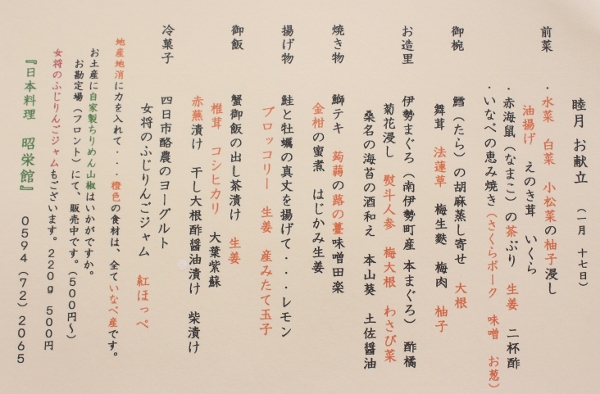 睦月 お献立 (一月 十七日)
前菜
・水菜 白菜 小松菜の柚子浸し
油揚げ えのき茸 いくら
・赤海鼠(なまこ)の茶ぶり 生姜 二杯酢
・いなべの恵み焼き(さくらポーク 味噌 お葱)
御椀
鱈(たら)の胡麻蒸し寄せ 大根
舞茸 法蓮草 梅生麩 梅肉 柚子
お造里
伊勢まぐろ(南伊勢町産 本まぐろ) 酢橘
菊花浸し 熨斗人参 梅大根 わさび菜
桑名の海苔の酒和え 本山葵 土佐醤油
焼き物
鰤テキ 蒟蒻の蕗の薹味噌田楽
金柑の蜜煮 はじかみ生姜
揚げ物
鮭と牡蠣の真丈を揚げて・・・レモン
ブロッコリー 生姜 産みたて玉子
御飯
蟹御飯の出し茶漬け 生姜
椎茸 コシヒカリ 大葉紫蘇
赤蕪漬け 干し大根酢醤油漬け 柴漬け
冷菓子
四日市酪農のヨーグルト
女将のふじりんごジャム 紅ほっぺ
地産地消に力を入れて・・・橙色の食材は、全ていなべ産です。
お土産に自家製ちりめん山椒はいかがですか。
お勘定場(フロント)にて、販売中です。(500円~)
女将のふじりんごジャムもございます。220g 500円
『日本料理 昭栄館』 0594(72)2065